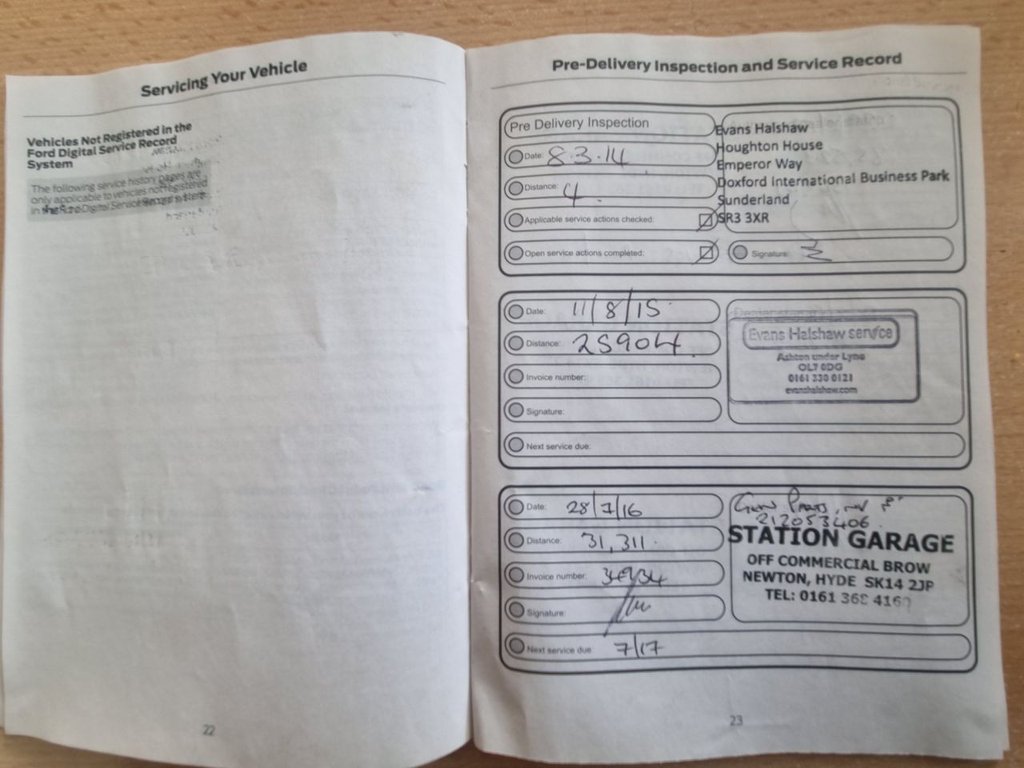 Servicing Your Vehicle
Vehicles Not Registered in the
Ford Digital Service Record
System
The following service history pages are
only applicable to vehicles not registered
in the Ford Digital Service Record system.
22
Pre-Delivery Inspection and Service Record
Pre Delivery Inspection
Date: 8.3.14
Distance: 4
Applicable service actions checked:
Open service actions completed:
Evans Halshaw
Houghton House
Emperor Way
Doxford International Business Park
Sunderland
SR3 3XR
Signature:
Date: 11/8/15
Distance: 25904
Invoice number:
Signature:
Next service due:
Evans Halshaw service
Ashton under Lyne
OL7 0DG
0161 330 0121
evanshalshaw.com
Date: 28/7/16
Distance: 31,311
Invoice number: 34934
Signature:
Next service due: 7/17
212053406
STATION GARAGE
OFF COMMERCIAL BROW
NEWTON, HYDE SK14 2JP
TEL: 0161 368 4169
23